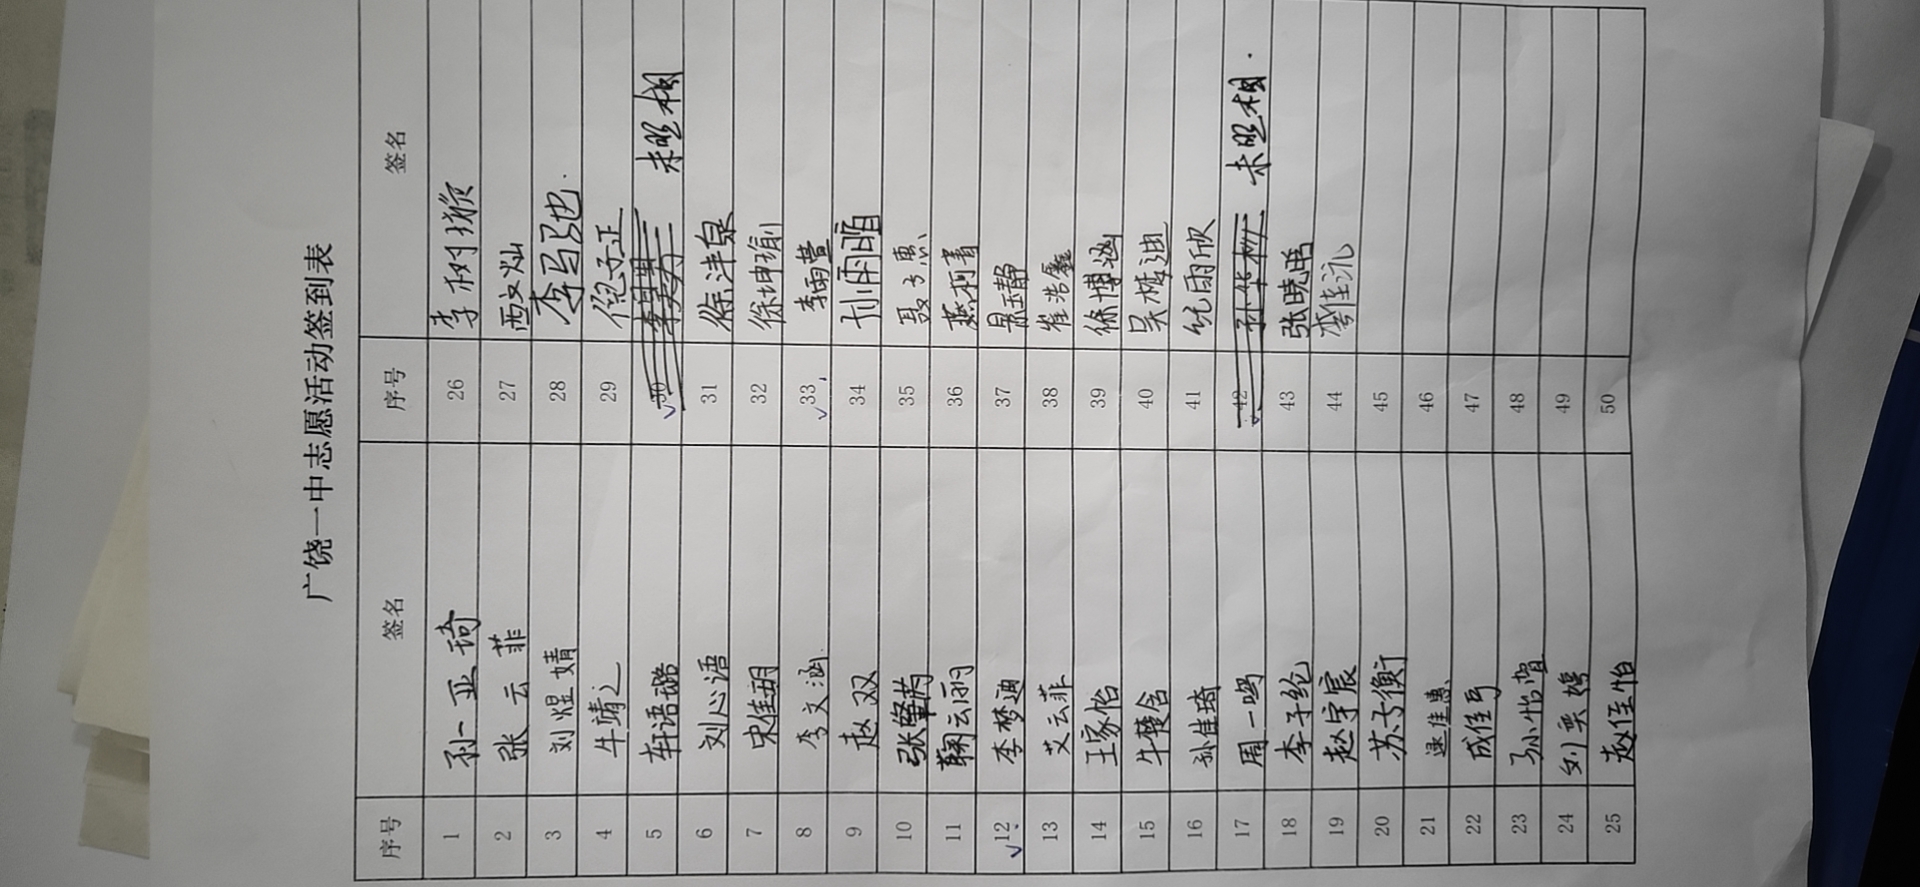 广饶一中志愿活动签到表
序号 签名 序号 签名
1 孙一亚琦 26 李树
2 张云菲 27 灿
3 刘煜婧 28 李马驰.
4 牛靖之 29 倪子正
5 轩语璐 30 未照相
6 刘心语 31 徐沣泉
7 宋佳玥 32 徐坤瑜
8 李文涵 33 李雨萱
9 赵双 34
10 张肇芮 35 聂子惠
11 鞠云丽 36 燕柯青
12 李梦迪 37 玉静
13 艾云菲 38 崔浩鑫
14 王家怡 39 徐博涵
15 牛薆含 40 吴梦迪
16 孙佳琦 41 雨欣
17 周一鸣 42 孙华彬 未照相.
18 李子纶 43 张晓
19 赵宇宸 44 佳沅
20 苏子衡 45
21 逯佳惠 46
22 成佳 47
23 孙怡 48
24 刘 49
25 赵佳怡 50